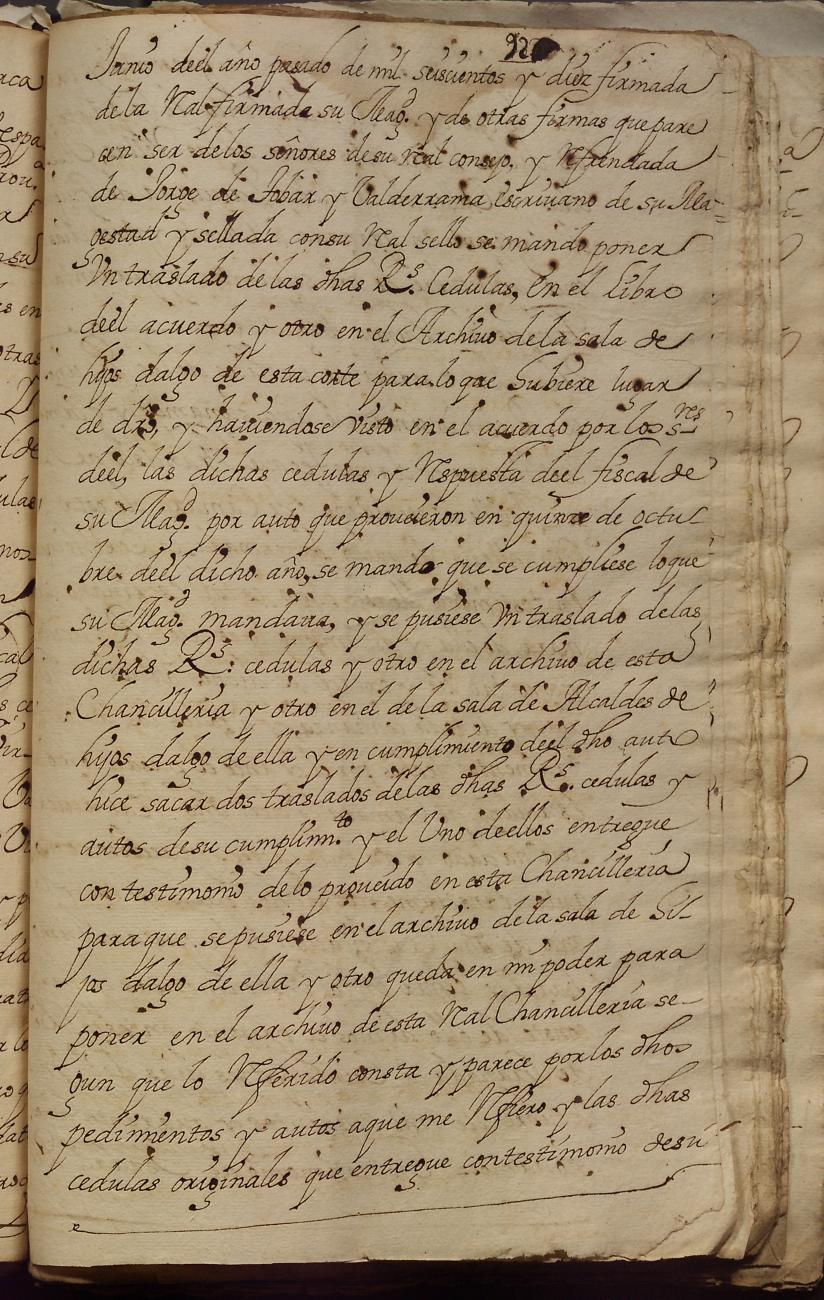 92
Junio deel año pasado de mil seiscientos y diez firmada
de la Real firmada su Magd. y de otras firmas que pare
cen ser delos señores desu Real consejo, y Refrendada
de Jorge de tobar y Valderrama escriuano de su Ma-
gestad y sellada consu Real sello se mando poner
Vn traslado de las dhas Rs. Cedulas, en el libro
deel acuerdo y otro en el Archiuo dela sala de
hijos dalgo de esta corte paralo que hubiere lugar
de dro, y hauiendose visto en el acuerdo por los sres
deel, las dichas cedulas y Respuesta deel fiscal de
su Magd. por auto que proueieron en quinze de octu-
bre deel dicho año, se mando que se cumpliese loque
su Magd. mandaua, y se pusiese Vn traslado delas
dichas Rs. cedulas y otro en el archiuo de esta
Chancilleria y otro en el de la sala de Alcaldes de
hijos dalgo de ella y en cumplimiento deel dho auto
hice sacar dos traslados delas dhas Rs. cedulas y
autos desu cumplimto. y el Uno deellos entregue
con testimonio delo proueido en esta Chancilleria
paraque sepusiese en el archiuo dela sala de hi-
jos dalgo de ella y otro queda en mi poder para
poner en el archiuo de esta Real Chancilleria se-
gun que lo Referido consta y parece por los dhos
pedimientos y autos aque me Refiero y las dhas
cedulas originales que entregue con testimonio desu